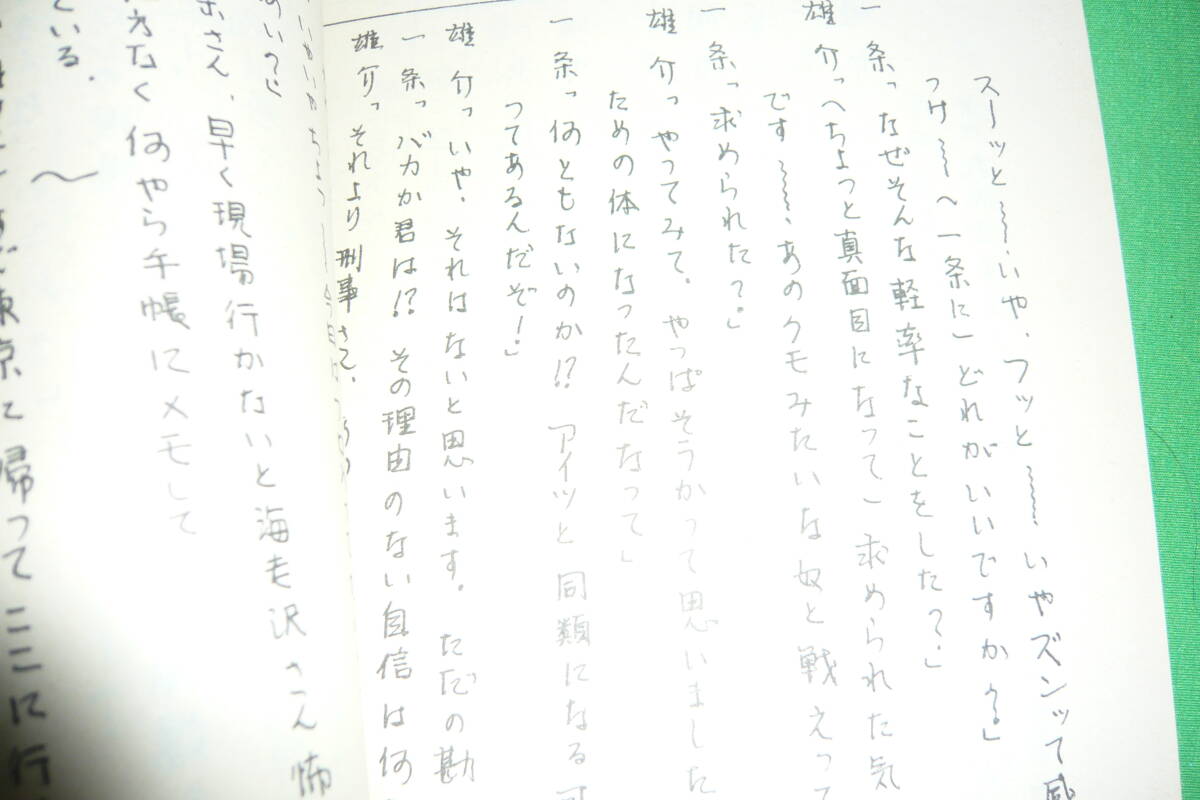 スーッと〜〜、いや、フッと〜〜、いやズンッて風
つけ〜〜へ一条に」どれがいいですか?」
一条っなぜそんな軽率なことをした?」
雄介っへちょっと真面目になって〉求められた気
です〜〜、あのクモみたいな奴と戦えって
一条っ求められた?」
雄介っやってみて、やっぱそうかって思いました
ための体になったんだなって」
一条っ何ともないのか!? アイツと同類になる可
ってあるんだぞ!」
雄介っいや、それはないと思います。ただの勘
一条っバカか君は!? その理由のない自信は何
雄介っそれより刑事さん、
いやいやちょっ
めい?」
ホさん、早く現場行かないと海老沢さん怖
なく何やら手帳にメモして
ている。
〜
東京に帰ってここに行